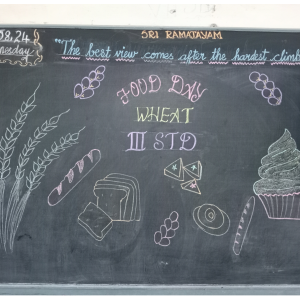 SRI RAMAJAYAM
8.24
nesday
"The best view comes after the hardest climb
FOOD DAY
WHEAT
III STD